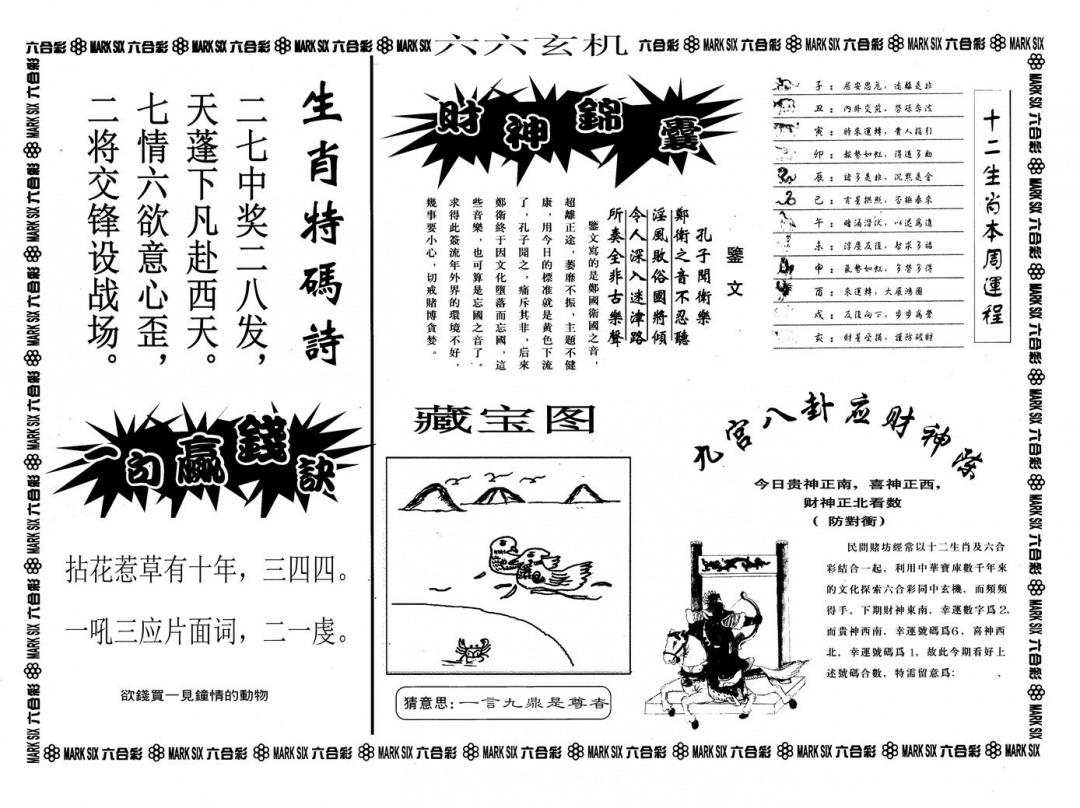 六合彩 MARK SIX 六合彩 MARK SIX 六合彩 MARK SIX 六合彩 MARK SIX 六六玄机 六合彩 MARK SIX 六合彩 MARK SIX 六合彩 MARK SIX 六合彩 MARK SIX
生肖特碼詩
二七中奖二八发，
天蓬下凡赴西天。
七情六欲意心歪，
二将交锋设战场。
一句贏錢訣
拈花惹草有十年，三四四。
一吼三应片面词，二一虔。
欲錢買一見鐘情的動物
財神錦囊
鑒文
孔子聞衛樂
鄭衛之音不忍聽
淫風敗俗國將傾
令人深入迷津路
所奏全非古樂聲
鑒文寫的是鄭國衛國之音，
超離正途，萎靡不振，主題不健
康，用今日的標准就是黄色下流
了，孔子聞之，痛斥其非，后來
鄭衛終于因文化墮落而忘國，這
些音樂，也可算是忘國之音了。
求得此簽流年外界的環境不好，
幾事要小心，切戒賭博貪婪。
藏宝图
猜意思：一言九鼎是尊者
十二生肖本周運程
子：居安思危，遠離是非
丑：内外交煎，勞碌奔波
寅：時來運轉，貴人指引
卯：氣勢如虹，得道多助
辰：諸多是非，沉默是金
巳：吉星拱照，否極泰來
午：暗涌潛伏，以退爲進
未：浮塵反復，智求多福
申：氣勢如虹，多勞多得
酉：來運轉，大展鴻圖
戌：反復向下，步步爲營
亥：財星受損，謹防破財
九宫八卦应财神榮
今日贵神正南，喜神正西，
财神正北看数
（防對衝）
民間賭坊經常以十二生肖及六合
彩結合一起，利用中華寶庫數千年來
的文化探索六合彩同中玄機，而頻頻
得手。下期財神東南，幸運數字爲2，
而貴神西南，幸運號碼爲6，喜神西
北，幸運號碼爲1，故此今期看好上
述號碼合數，特需留意爲：、
MARK SIX 六合彩 MARK SIX 六合彩 MARK SIX 六合彩 MARK SIX 六合彩 MARK SIX 六合彩 MARK SIX 六合彩 MARK SIX 六合彩 MARK SIX 六合彩 MARK SIX 六合彩 MARK SIX